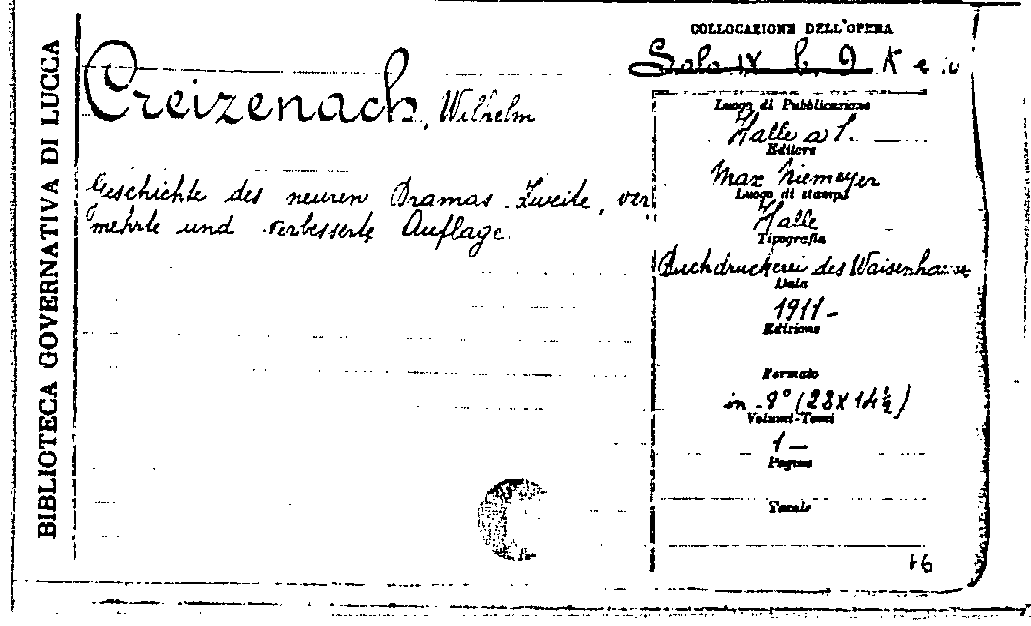 BIBLIOTECA GOVERNATIVA DI LUCCA
Creizenach, Wilhelm
Geschichte des neuren Dramas. Zweite, ver
mehrte und verbesserte Auflage.
COLLOCAZIONE DELL'OPERA
Sala IX b. 9 K e
Luogo di Pubblicazione
Halle a S.
Editore
Max Niemeyer
Luogo di stampa
Halle
Tipografia
Buchdruckerei des Waisenhauses
Data
1911 -
Edizione
Formato
in 8° (23 X 14 ½)
Volumi-Tomi
1 -
Pagine
Tavole